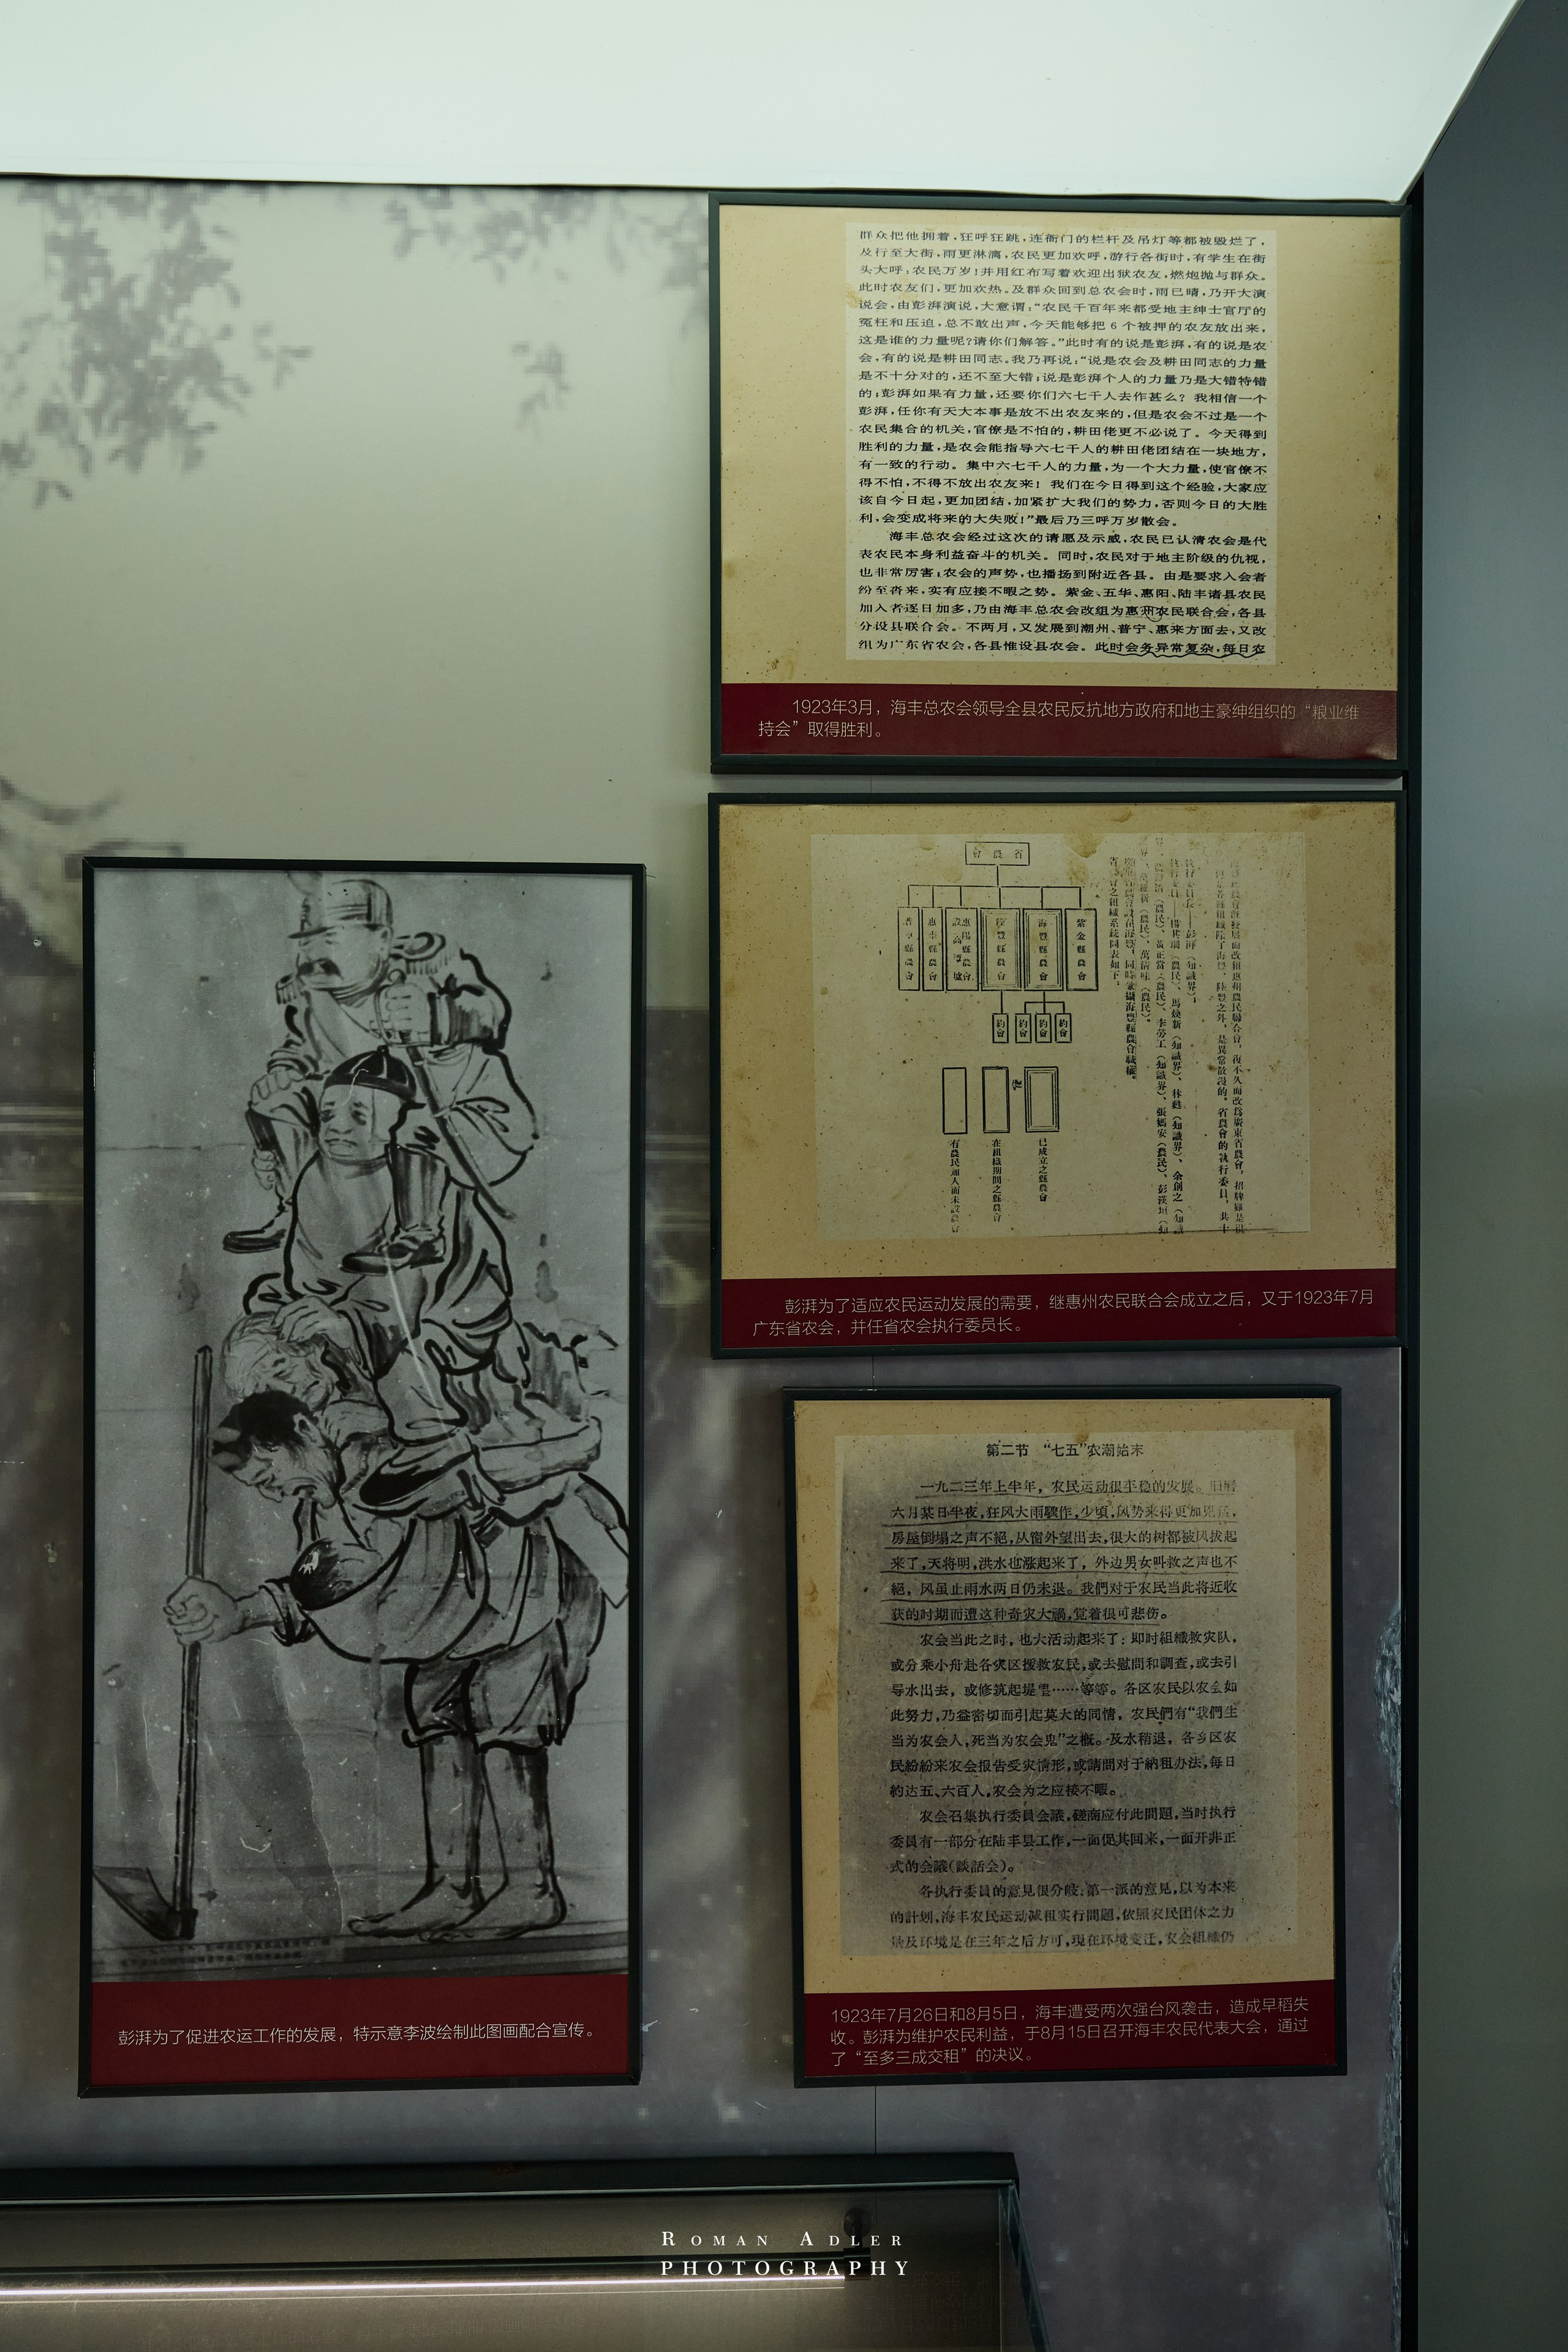 群众把他拥着，狂呼狂跳，连衙门的栏杆及吊灯等都被毁烂了，
及行至大街，雨更淋漓，农民更加欢呼，游行各街时，有学生在街
头大呼：农民万岁！并用红布写着欢迎出狱农友，燃炮抛与群众。
此时农友们，更加欢热。及群众回到总农会时，雨已晴，乃开大演
说会，由彭湃演说，大意谓：“农民千百年来都受地主绅士官厅的
冤枉和压迫，总不敢出声，今天能够把 6 个被押的农友放出来，
这是谁的力量呢？请你们解答。”此时有的说是彭湃，有的说是农
会，有的说是耕田同志。我乃再说：“说是农会及耕田同志的力量
是不十分对的，还不至大错；说是彭湃个人的力量乃是大错特错
的；彭湃如果有力量，还要你们六七千人去作甚么？ 我相信一个
彭湃，任你有天大本事是放不出农友来的，但是农会不过是一个
农民集合的机关，官僚是不怕的，耕田佬更不必说了。今天得到
胜利的力量，是农会能指导六七千人的耕田佬团结在一块地方，
有一致的行动。集中六七千人的力量，为一个大力量，使官僚不
得不怕，不得不放出农友来！ 我们在今日得到这个经验，大家应
该自今日起，更加团结，加紧扩大我们的势力，否则今日的大胜
利，会变成将来的大失败！”最后乃三呼万岁散会。
海丰总农会经过这次的请愿及示威，农民已认清农会是代
表农民本身利益奋斗的机关。同时，农民对于地主阶级的仇视，
也非常厉害；农会的声势，也播扬到附近各县。由是要求入会者
纷至沓来，实有应接不暇之势。紫金、五华、惠阳、陆丰诸县农民
加入者逐日加多，乃由海丰总农会改组为惠州农民联合会，各县
分设县联合会。不两月，又发展到潮州、普宁、惠来方面去，又改
组为广东省农会，各县惟设县农会。此时会务异常复杂，每日农
1923年3月，海丰总农会领导全县农民反抗地方政府和地主豪绅组织的“粮业维
持会”取得胜利。
省農會
紫金縣農會
海豐縣農會
陸豐縣農會
惠陽縣農會
惠來縣農會
普寧縣農會
約會
約會
約會
約會
已成立之縣農會
在組織期間之縣農會
有農民加入而未設農會
省農會之組織系統圖表如下：
彭湃为了适应农民运动发展的需要，继惠州农民联合会成立之后，又于1923年7月
广东省农会，并任省农会执行委员长。
第二节 “七五”农潮始末
一九二三年上半年，农民运动很平稳的发展。旧曆
六月某日半夜，狂风大雨驟作，少頃，风势来得更加兇猛，
房屋倒塌之声不絕，从窗外望出去，很大的树都被风拔起
来了，天将明，洪水也漲起来了，外边男女叫救之声也不
絕，风虽止雨水两日仍未退。我們对于农民当此将近收
获的时期而遭这种奇灾大祸，觉着很可悲伤。
农会当此之时，也大活动起来了：即时組織救灾队，
或分乘小舟赴各灾区援救农民，或去慰問和調查，或去引
导水出去，或修筑起堤……等等。各区农民以农会如
此努力，乃益密切而引起莫大的同情，农民們有“我們生
当为农会人，死当为农会鬼”之概。及水稍退，各乡区农
民紛紛来农会报告受灾情形，或請問对于納租办法，每日
約达五、六百人，农会为之应接不暇。
农会召集执行委員会議，磋商应付此問題，当时执行
委員有一部分在陆丰县工作，一面促其回来，一面开非正
式的会議（談話会）。
各执行委員的意見很分歧：第一派的意見，以为本来
的計划，海丰农民运动减租实行問題，依照农民团体之力
量及环境是在三年之后方可，現在环境变迁，农会組織仍
1923年7月26日和8月5日，海丰遭受两次强台风袭击，造成早稻失
收。彭湃为维护农民利益，于8月15日召开海丰农民代表大会，通过
了“至多三成交租”的决议。
彭湃为了促进农运工作的发展，特示意李波绘制此图画配合宣传。
ROMAN ADLER
PHOTOGRAPHY